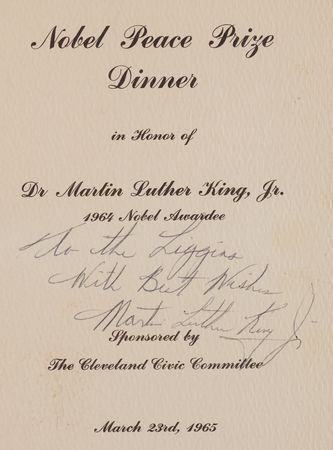 Nobel Peace Prize
Dinner
in Honor of
Dr Martin Luther King, Jr.
1964 Nobel Awardee
To the Liggins
With Best Wishes
Martin Luther King Jr
Sponsored by
The Cleveland Civic Committee
March 23rd, 1965